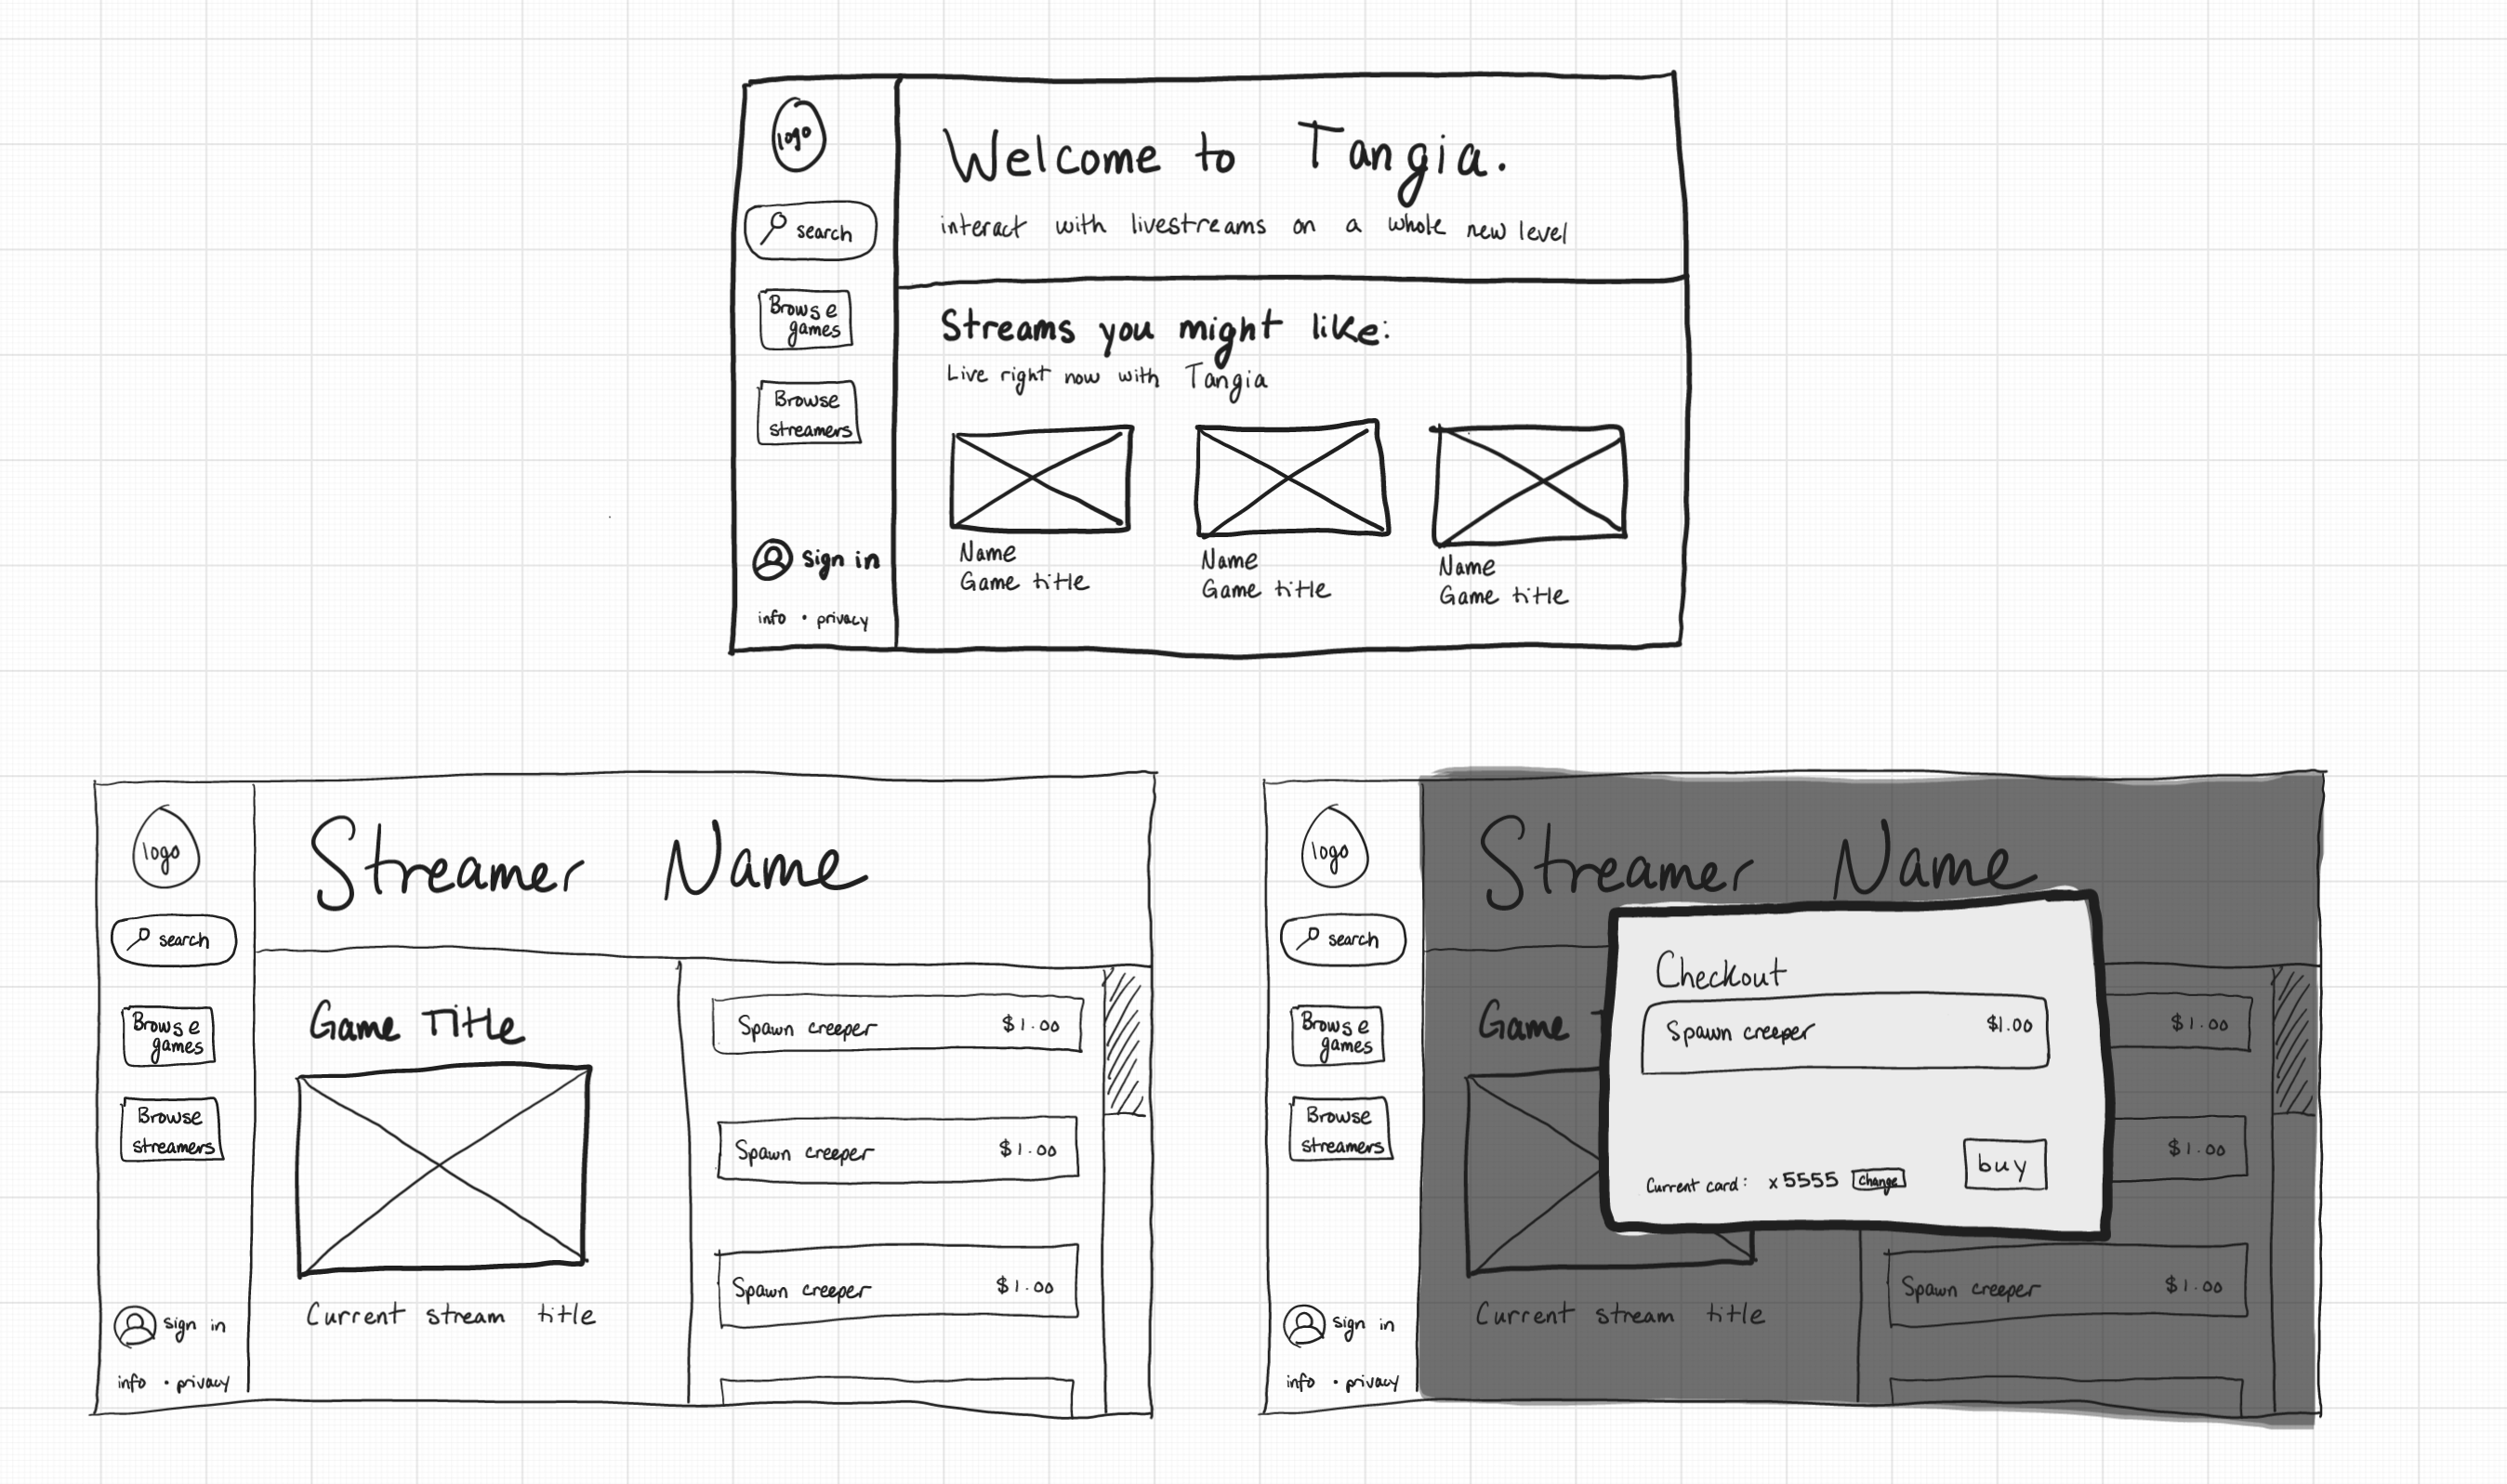 logo
search
Browse
games
Browse
streamers
sign in
info • privacy
Welcome to Tangia.
interact with livestreams on a whole new level
Streams you might like:
Live right now with Tangia
Name
Game title
Name
Game title
Name
Game title
logo
search
Browse
games
Browse
streamers
sign in
info • privacy
Streamer Name
Game Title
Current stream title
Spawn creeper $1.00
Spawn creeper $1.00
Spawn creeper $1.00
logo
search
Browse
games
Browse
streamers
sign in
info • privacy
Streamer Name
Game T
Current stream title
$1.00
$1.00
Spawn creeper $1.00
Checkout
Spawn creeper $1.00
Current card: x5555 Change
buy